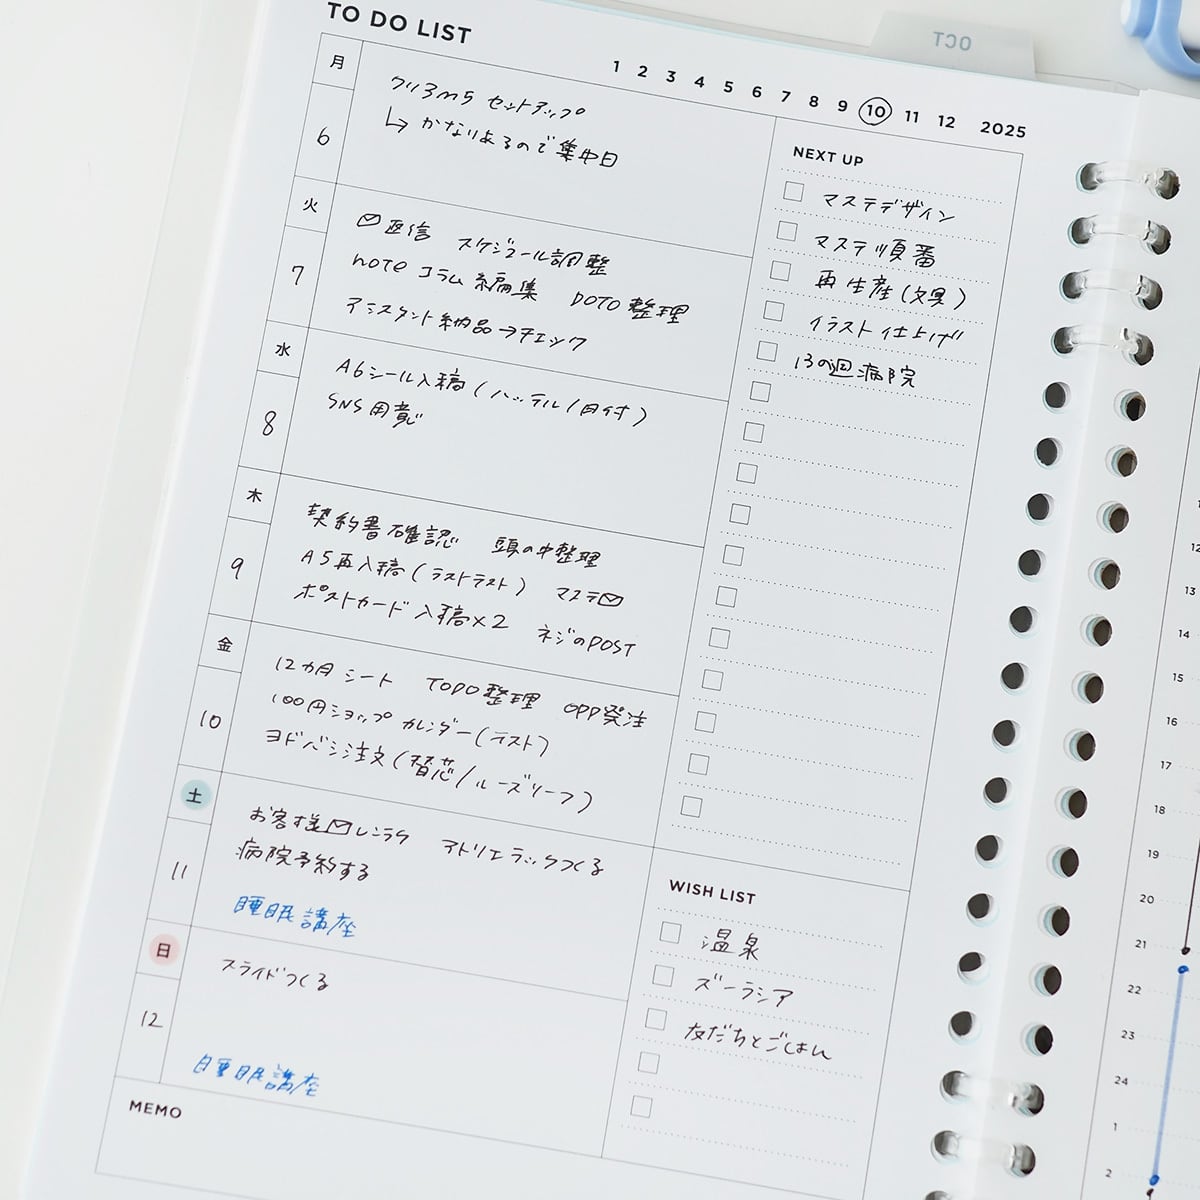 TO DO LIST
OCT
1 2 3 4 5 6 7 8 9 10 11 12 2025
月
6
セットアップ
↳ かなりあるので集中日
火
7
返信 スケジュール調整
note コラム編集 DOTO整理
アシスタント納品→チェック
水
8
A6シール入稿(ハッテル/日付)
SNS用意
木
9
契約書確認 頭の中整理
A5再入稿(ラストテスト) マステ
ポストカード入稿×2 ネジのPOST
金
10
12カ月シート TODO整理 OPP発注
100円ショップカレンダー(テスト)
ヨドバシ注文(替芯/ルーズリーフ)
土
11
お客様レンラク アトリエラックつくる
病院予約する
睡眠講座
日
12
スライドつくる
睡眠講座
MEMO
NEXT UP
マステデザイン
マステ順番
再生産(文具)
イラスト仕上げ
13の週病院
WISH LIST
温泉
ズーラシア
友だちとごはん
12
13
14
15
16
17
18
19
20
21
22
23
24
1
2